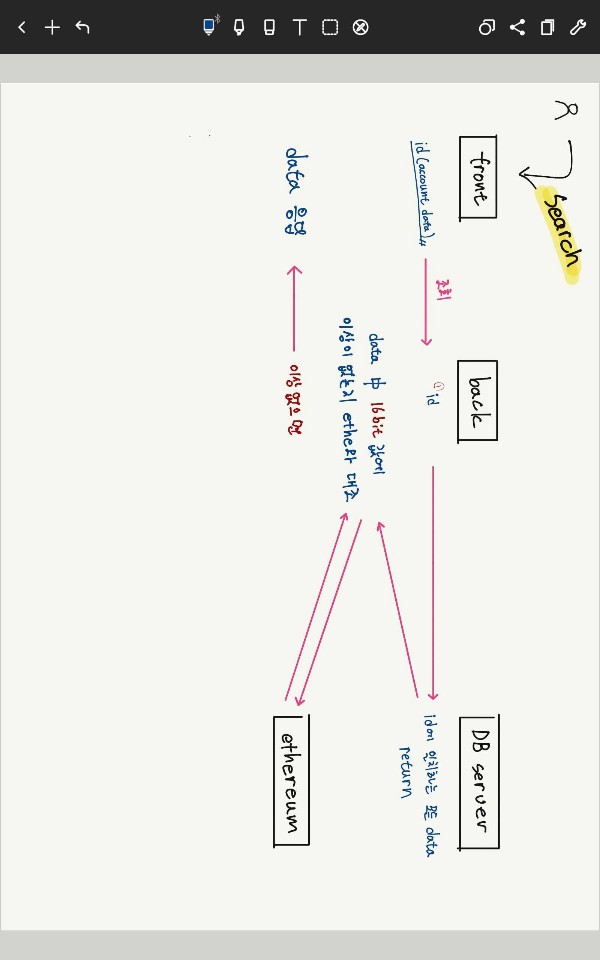 Search
front
back
DB server
id (account data)
조회
① id
id에 일치하는 모든 data
return
data 中 16bit 값에
이상이 없는지 ethe와 대조
data 응답
이상 없으면
ethereum